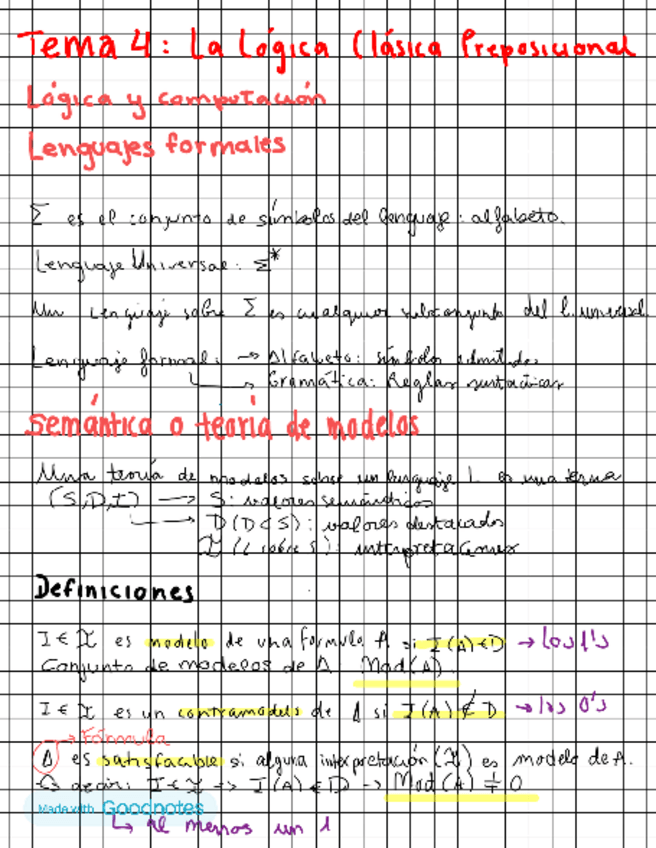 Tema 4: La Lógica Clásica Preposicional
Lógica y computación
Lenguajes formales
Σ es el conjunto de símbolos del lenguaje: alfabeto.
Lenguaje Universal: Σ*
Un lenguaje sobre Σ es cualquier subconjunto del l. universal.
Lenguaje formal: → Alfabeto: símbolos admitidos
Gramática: Reglas sintácticas
Semántica o teoría de modelos
Una teoría de modelos sobre un lenguaje L es una terna
(S,D,I) → S: valores semánticos
→ D (D⊂S): valores destacados
I (L sobre S): interpretaciones
Definiciones
I ∈ I es modelo de una formula A si I(A)∈D → los 1's
Conjunto de modelos de A Mod(A)
I ∈ I es un contramodelo de A si I(A)∉D → los 0's
→ Fórmula
A es satisfacible si alguna interpretación (I) es modelo de A.
Es decir: I ∈ I → I(A)∈D → Mod(A) ≠ 0
Made with Goodnotes
↳ al menos un 1